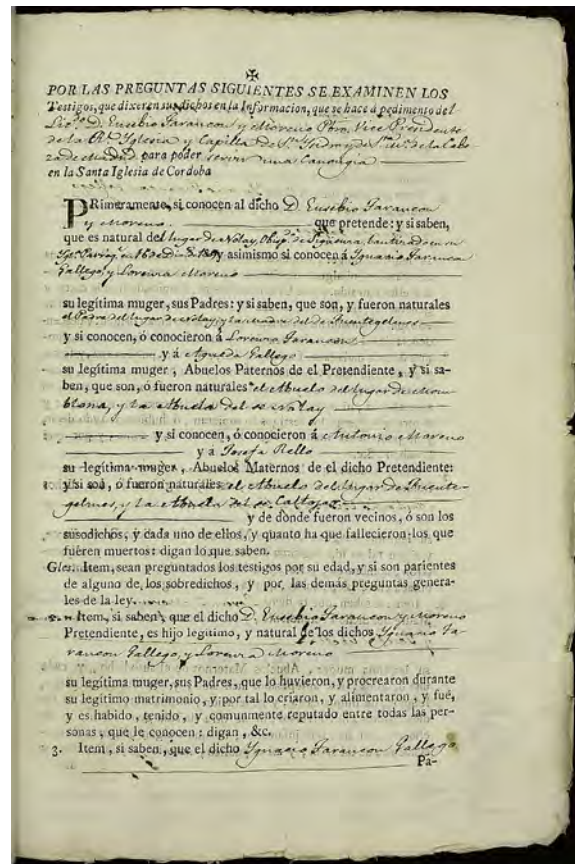 ✠
POR LAS PREGUNTAS SIGUIENTES SE EXAMINEN LOS
Testigos, que dixeren sus dichos en la Informacion, que se hace á pedimento del
Lic.do D. Eusebio Tarancon y Moreno Pbro. Vice Presidente
de la Rl. Iglesia y Capilla de Sn. Isidro de la Cabe
za de Madrid para poder servir una Canongia
en la Santa Iglesia de Cordoba
PRimeramente, si conocen al dicho D. Eusebio Tarancon
y Moreno que pretende: y si saben,
que es natural del lugar de Nolay, Obisp.do de Sigüenza, bautizado en su
Igl.a Parroq.l en 16 de y asimismo si conocen á Ignacio Taranco
Gallego, y Lorenza Moreno
su legítima muger, sus Padres: y si saben, que son, y fueron naturales
el Padre del lugar de Nolay, y la madre del de Fuentegelmes
y si conocen, ó conocieron á Lorenzo Tarancon
y á Agueda Gallego
su legítima muger, Abuelos Paternos de el Pretendiente, y si sa-
ben, que son, ó fueron naturales el Abuelo del lugar de Mom
blona, y la Abuela del de Nolay
y si conocen, ó conocieron á Antonio Moreno
y a Josefa Rello
su legítima muger, Abuelos Maternos de el dicho Pretendiente:
y si son, ó fueron naturales el Abuelo del lugar de Fuente-
gelmes, y la Abuela del de Caltojar
y de dónde fueron vecinos, ó son los
susodichos, y cada uno de ellos, y quanto ha que fallecieron los que
fueren muertos: digan lo que saben.
Gles. Item, sean preguntados los testigos por su edad, y si son parientes
de alguno de los sobredichos, y por las demás preguntas genera-
les de la ley.
Item, si saben, que el dicho D. Eusebio Tarancon y Moreno
Pretendiente, es hijo legítimo, y natural de los dichos Ignacio Ta-
rancon Gallego, y Lorenza Moreno
su legítima muger, sus Padres, que lo huvieron, y procrearon durante
su legítimo matrimonio, y por tal lo criaron, y alimentaron, y fué,
y es habido, tenido, y comunmente reputado entre todas las per-
sonas, que le conocen: digan, &c.
3. Item, si saben, que el dicho Ignacio Tarancon Gallego
Pa-